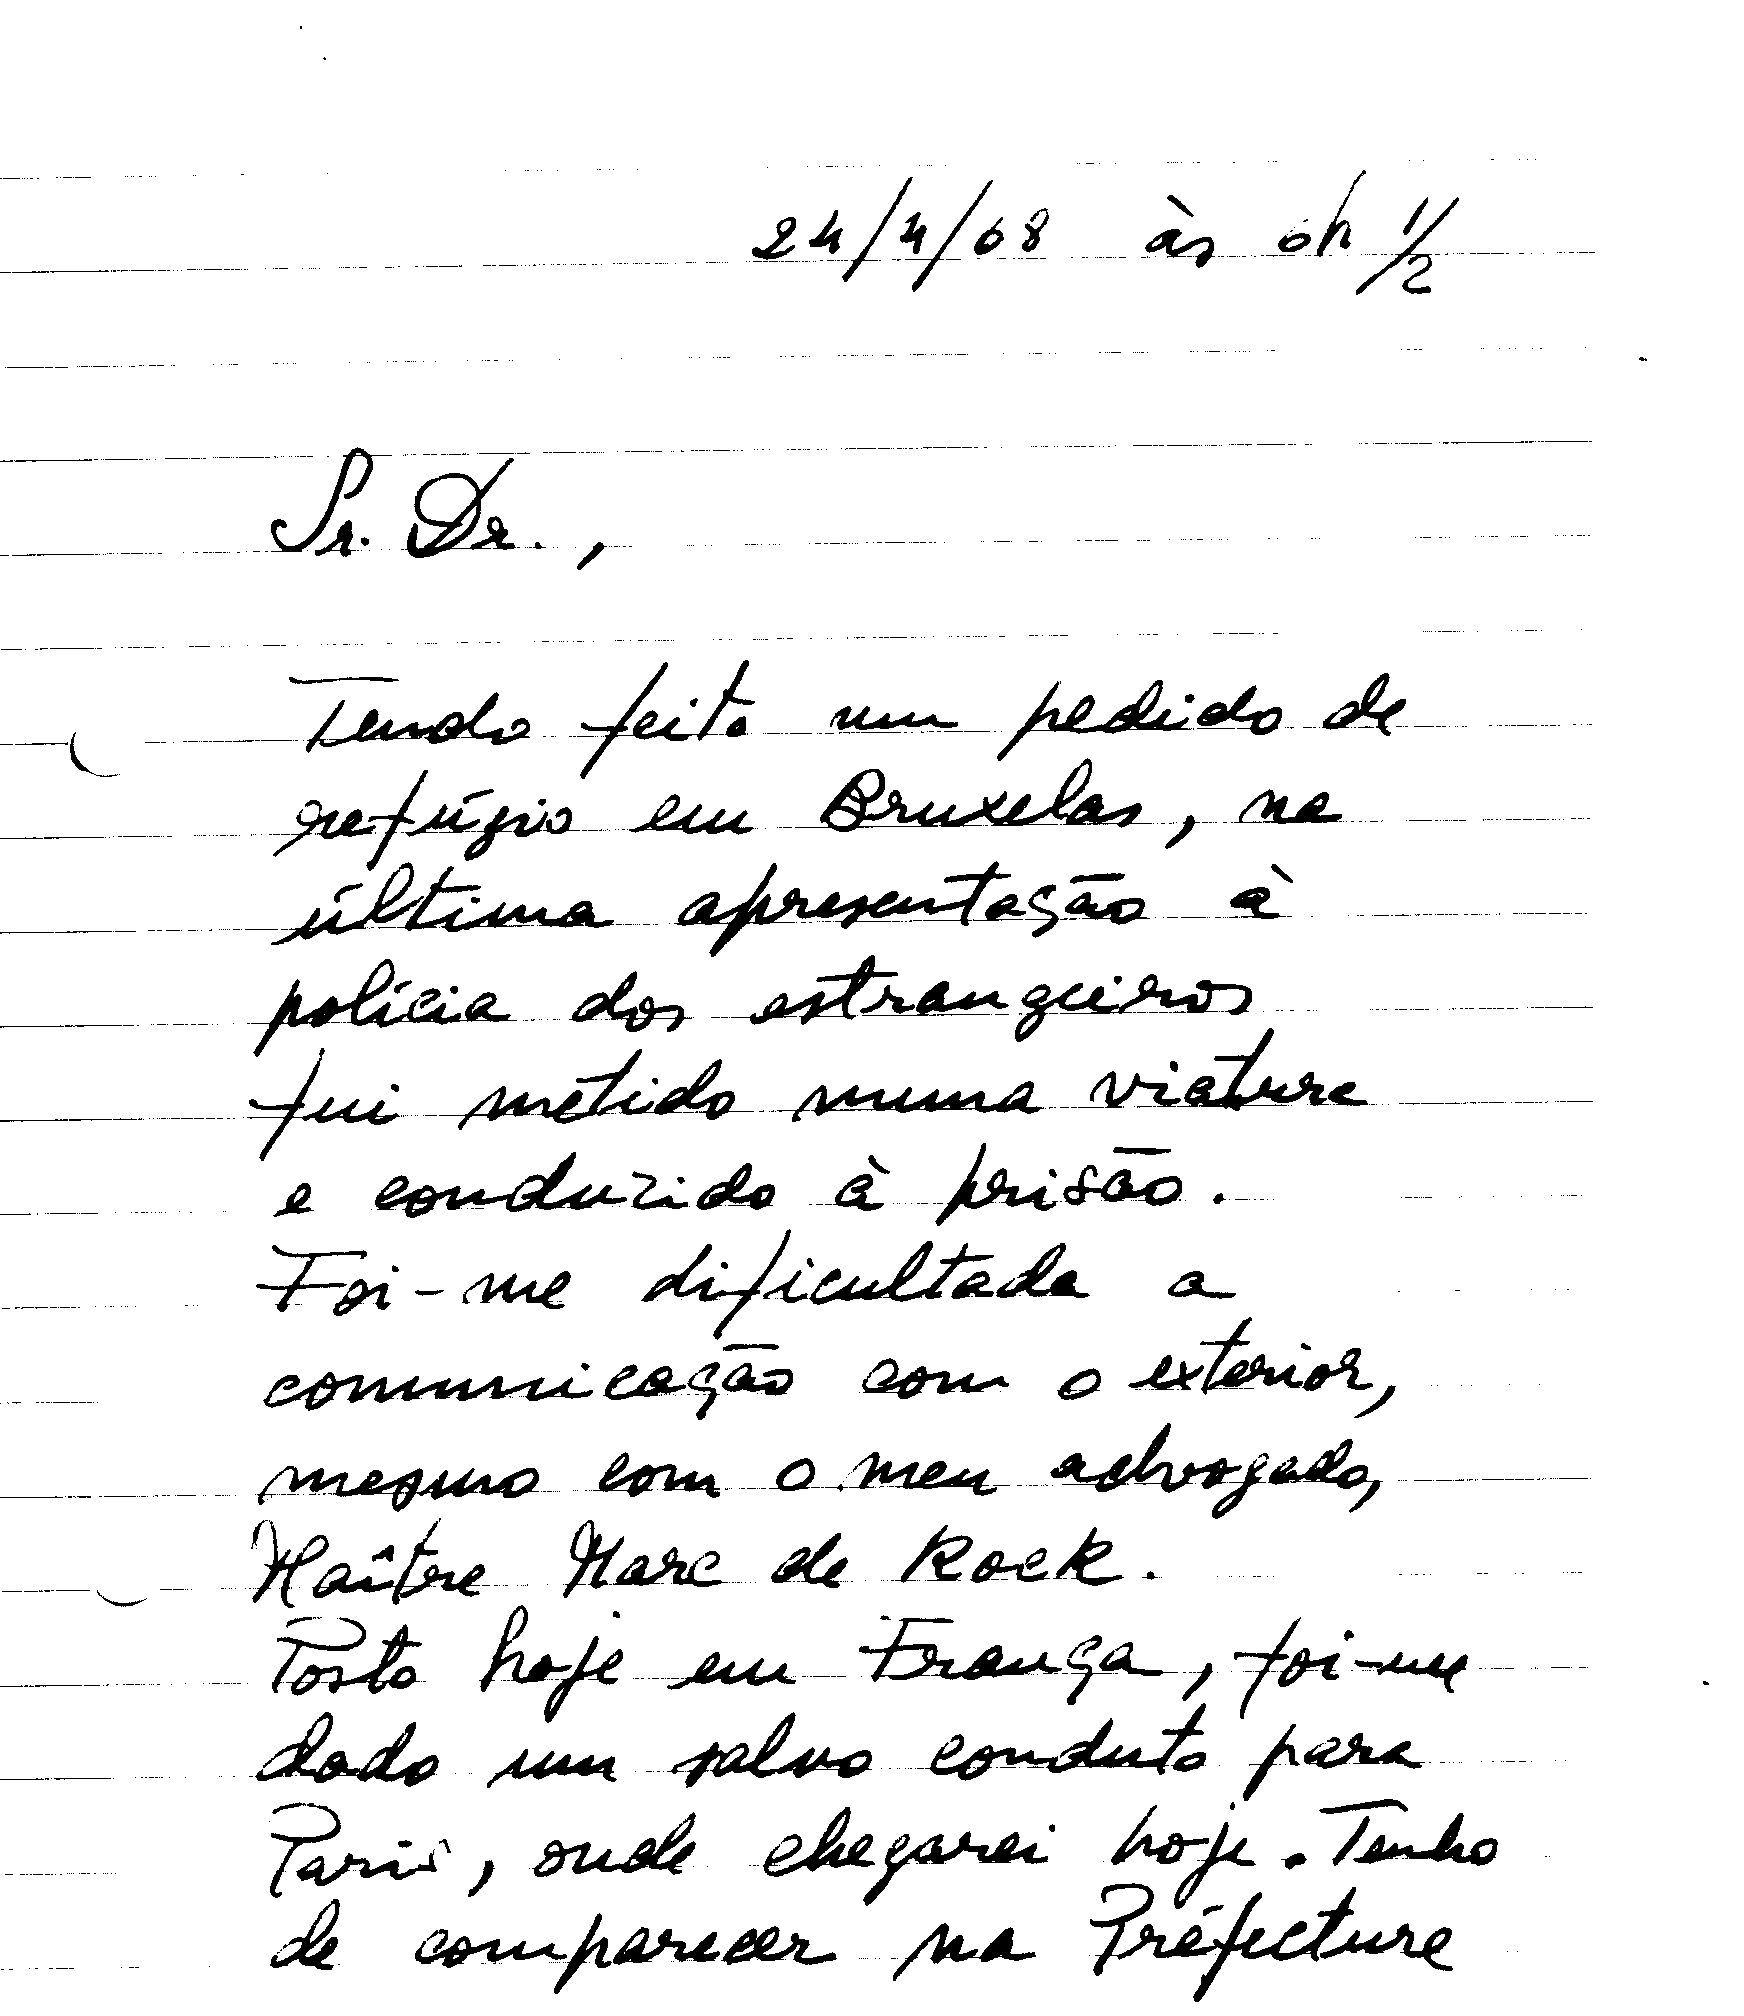 24/4/68 às 6h 1/2
Sr. Dr.,
Tendo feito um pedido de
refúgio em Bruxelas, na
última apresentação à
polícia dos estrangeiros
fui metido numa viatura
e conduzido à prisão.
Foi-me dificultada a
comunicação com o exterior,
mesmo com o meu advogado,
Maître Marc de Kock.
Posto hoje em França, foi-me
dado um salvo conduto para
Paris, onde chegarei hoje. Tenho
de comparecer na Préfecture